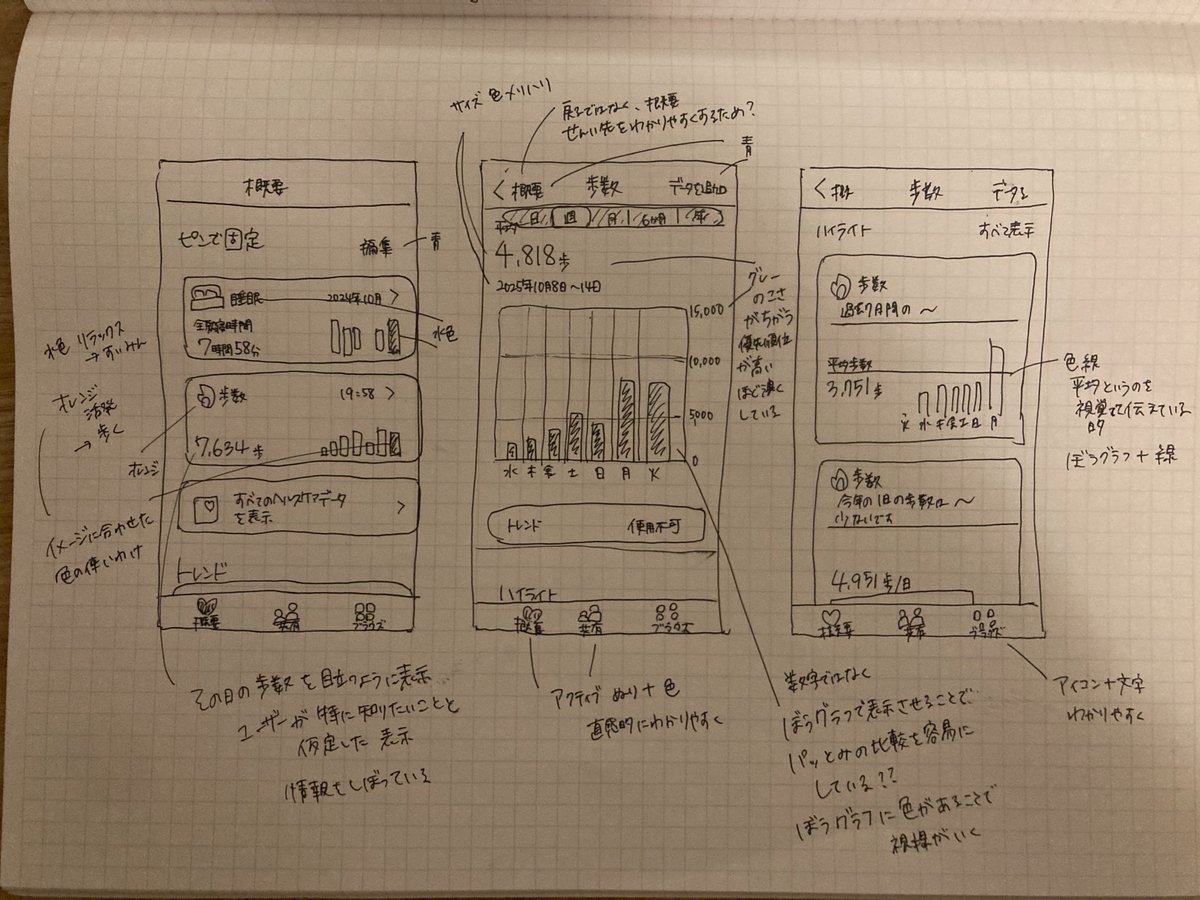 サイズ 色 メリハリ
戻るではなく、概要
せんい先をわかりやすくするため?
青
概要
ピンで固定
編集
青
睡眠
2024年10月 >
7時間58分
水色
水色 リラックス
→ すいみん
オレンジ
活発
→ 歩く
歩数
19:58 >
7,634歩
オレンジ
すべてのヘルスケアデータ
を表示
>
イメージに合わせた
色の使いわけ
トレンド
概要
共有
ブラウズ
その日の歩数を目立つように表示
ユーザーが特に知りたいことと
仮定した 表示
情報をしぼっている
< 概要
歩数
データを追加
日
週
月
6か月
年
平均
4,818歩
2025年10月8日〜14日
15,000
10,000
5000
0
水 木 金 土 日 月 火
グレー
のこさ
がちがう
優先順位
が高い
ほど濃く
している
トレンド
使用不可
ハイライト
概要
共有
ブラウズ
アクティブ ぬり+色
直感的にわかりやすく
数字ではなく
ぼうグラフで表示させることで、
パッとみの比較を容易に
している??
ぼうグラフに色があることで
視線がいく
< 概
歩数
データを
ハイライト
すべて表示
歩数
過去7日間の 〜
平均歩数
3,751歩
火 水 木 金 土 日 月
色線
平均というのを
視覚的に伝えている
ぼうグラフ+線
歩数
今年の1日の歩数は 〜
少ないです
4,951歩/日
概要
共有
ブラウズ
アイコン+文字
わかりやすく